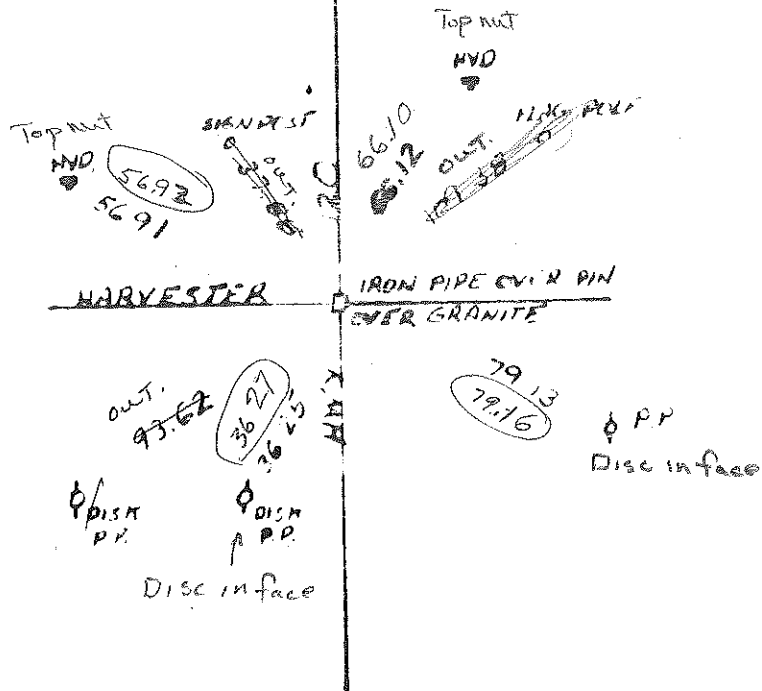 Top nut
HYD
Top nut
HYD.
56.92
56 91
SIGN POST
OUT.
66.10
66.12
OUT.
HARVESTER
IRON PIPE OVER PIN
OVER GRANITE
OUT.
93.62
36 27
36 25
79 13
79.16
P.P
Disc in face
DISK
P.P.
DISK
P.P.
Disc in face